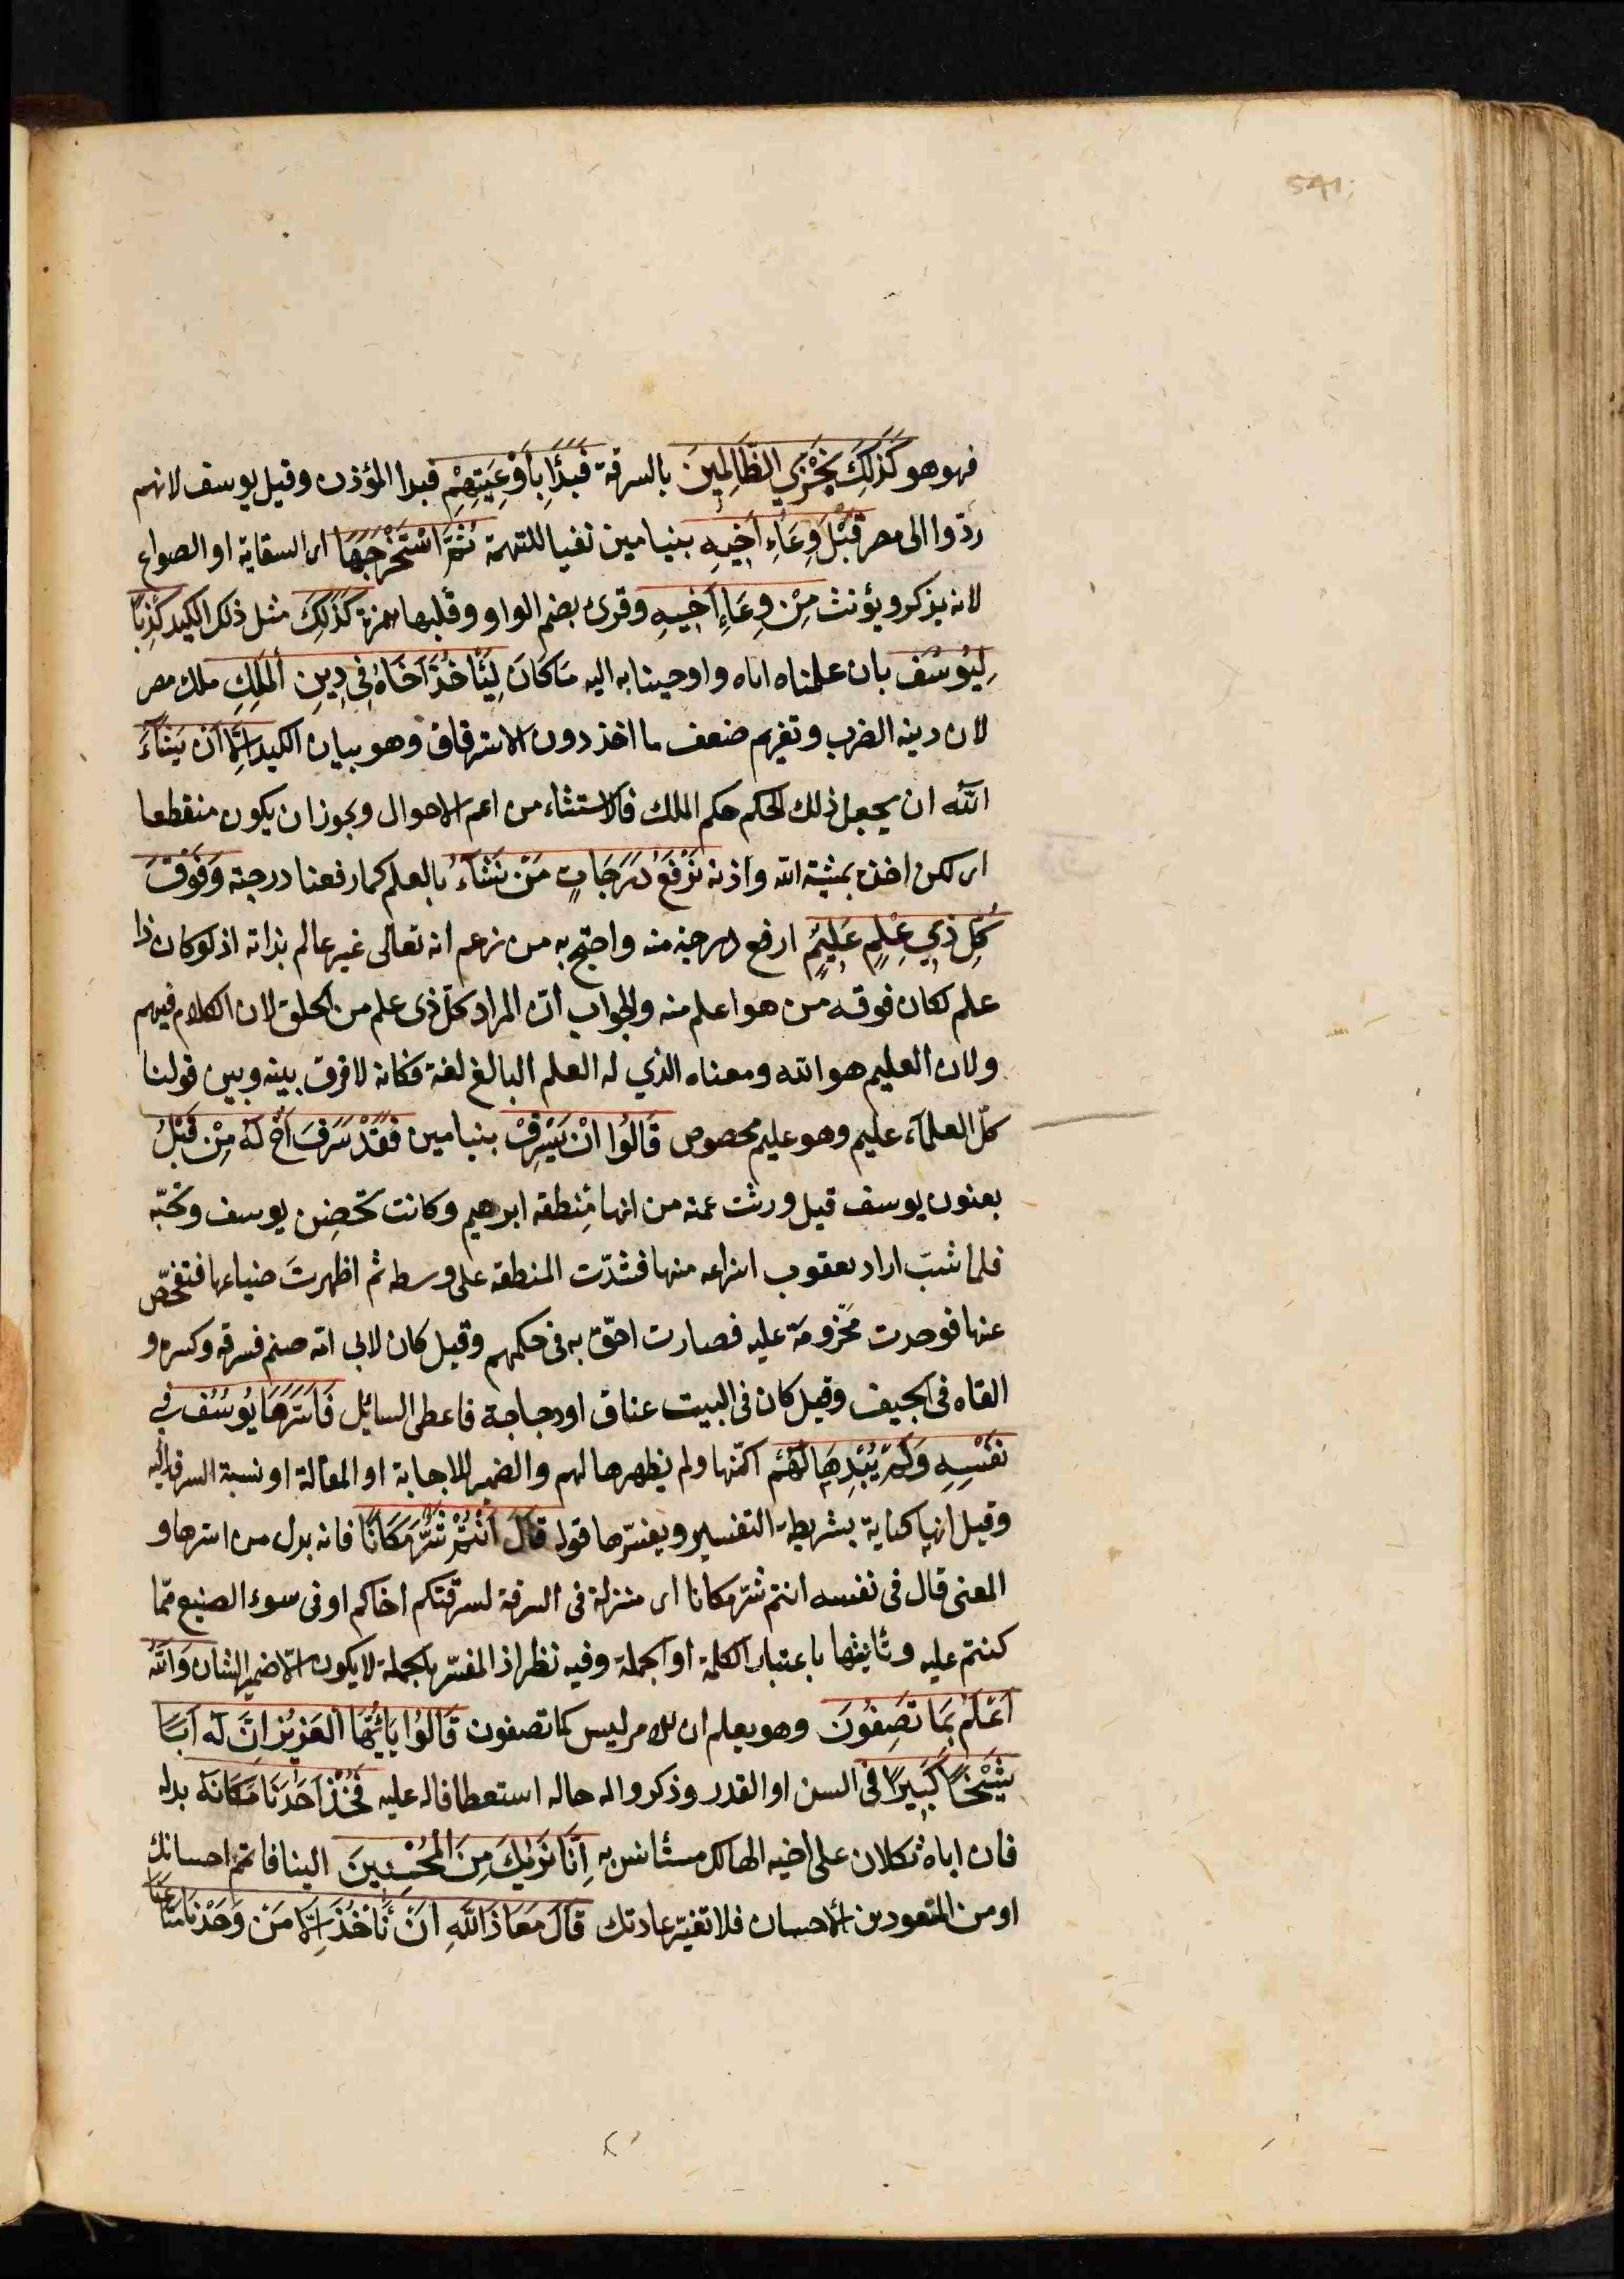 541
فهو هو كَذٰلِكَ نَجْزِي الظَّالِمِينَ بالسرقة فَبَدَأَ بِأَوْعِيَتِهِمْ فبدا المؤذن وقيل يوسف لانهم
ردّوا الى مصر قَبْلَ وِعَاءِ أَخِيهِ بنيامين نفيا للتهمة ثُمَّ اسْتَخْرَجَهَا اى السقاية او الصواع
لانه يذكر ويؤنث مِنْ وِعَاءِ أَخِيهِ وقرئ بضم الواو وقلبها همزة كَذٰلِكَ مثل ذلك الكيد كِدْنَا
لِيُوسُفَ بان علمناه اياه واوحينا به اليه مَا كَانَ لِيَأْخُذَ أَخَاهُ فِي دِينِ الْمَلِكِ ملك مصر
لان دينه الضرب وتغريم ضعف ما اخذ دون الاسترقاق وهو بيان الكيد إِلَّا أَنْ يَشَاءَ
اللّٰه ان يجعل ذلك الحكم حكم الملك فالاستثناء من اعم الاحوال ويجوز ان يكون منقطعا
اى لكن اخذه بمشية الله واذنه نَرْفَعُ دَرَجَاتٍ مَنْ نَشَاءُ بالعلم كما رفعنا درجته وَفَوْقَ
كُلِّ ذِي عِلْمٍ عَلِيمٌ ارفع درجة منه واحتج به من زعم انه تعالى غير عالم بذاته اذ لو كان ذا
علم لكان فوقه من هو اعلم منه والجواب انّ المراد كلّ ذى علم من الخلق لان الكلام فيهم
ولان العليم هو الله ومعناه الذي له العلم البالغ لغة فكانه لا فرق بينه وبين قولنا
كلّ العلمآء عليم وهو عليم مخصوص قَالُوا إِنْ يَسْرِقْ بنيامين فَقَدْ سَرَقَ أَخٌ لَهُ مِنْ قَبْلُ
يعنون يوسف قيل ورثت عمته من ابيها مِنطقة ابرهيم وكانت تحضِن يوسف وتحبّه
فلما شبّ اراد يعقوب انتزاعه منها فشدّت المنطقة على وسطه ثم اظهرتَ ضياعها فتفحّص
عنها فوجدت محزومة عليه فصارت احقّ به فى حكمهم وقيل كان لابى امّه صنم فسرقه وكسره و
القاه فى الجيف وقيل كان فى البيت عناق او دجاجة فاعطى السائل فَأَسَرَّهَا يُوسُفُ فِي
نَفْسِهِ وَلَمْ يُبْدِهَا لَهُمْ اكنّها ولم يظهرها لهم والضمير للاجابة او المقالة او نسبة السرقة اليه
وقيل انها كناية بشريطة التفسير ويفسّرها قوله قَالَ أَنْتُمْ شَرٌّ مَكَانًا فانه بدل من اسرها و
المعنى قال فى نفسه انتم شرّ مكانا اى منزلة فى السرقة لسرقتكم اخاكم او فى سوء الصنيع ممّا
كنتم عليه وتأنيثها باعتبار الكلمة او الجملة وفيه نظر اذ المفسّر بالجملة لا يكون الّا ضمير الشان وَاللّٰهُ
أَعْلَمُ بِمَا تَصِفُونَ وهو يعلم ان الامر ليس كما تصفون قَالُوا يَاأَيُّهَا الْعَزِيزُ إِنَّ لَهُ أَبًا
شَيْخًا كَبِيرًا فى السن او القدر وذكروا له حاله استعطافا له عليه فَخُذْ أَحَدَنَا مَكَانَهُ بدله
فان اباه ثكلان على اخيه الهالك مستأنس به إِنَّا نَرٰيكَ مِنَ الْمُحْسِنِينَ الينا فاتم احسانك
او من المتعودين الاحسان فلا تغيّر عادتك قَالَ مَعَاذَ اللَّهِ أَنْ نَأْخُذَ إِلَّا مَنْ وَجَدْنَا مَتَاعَنَا